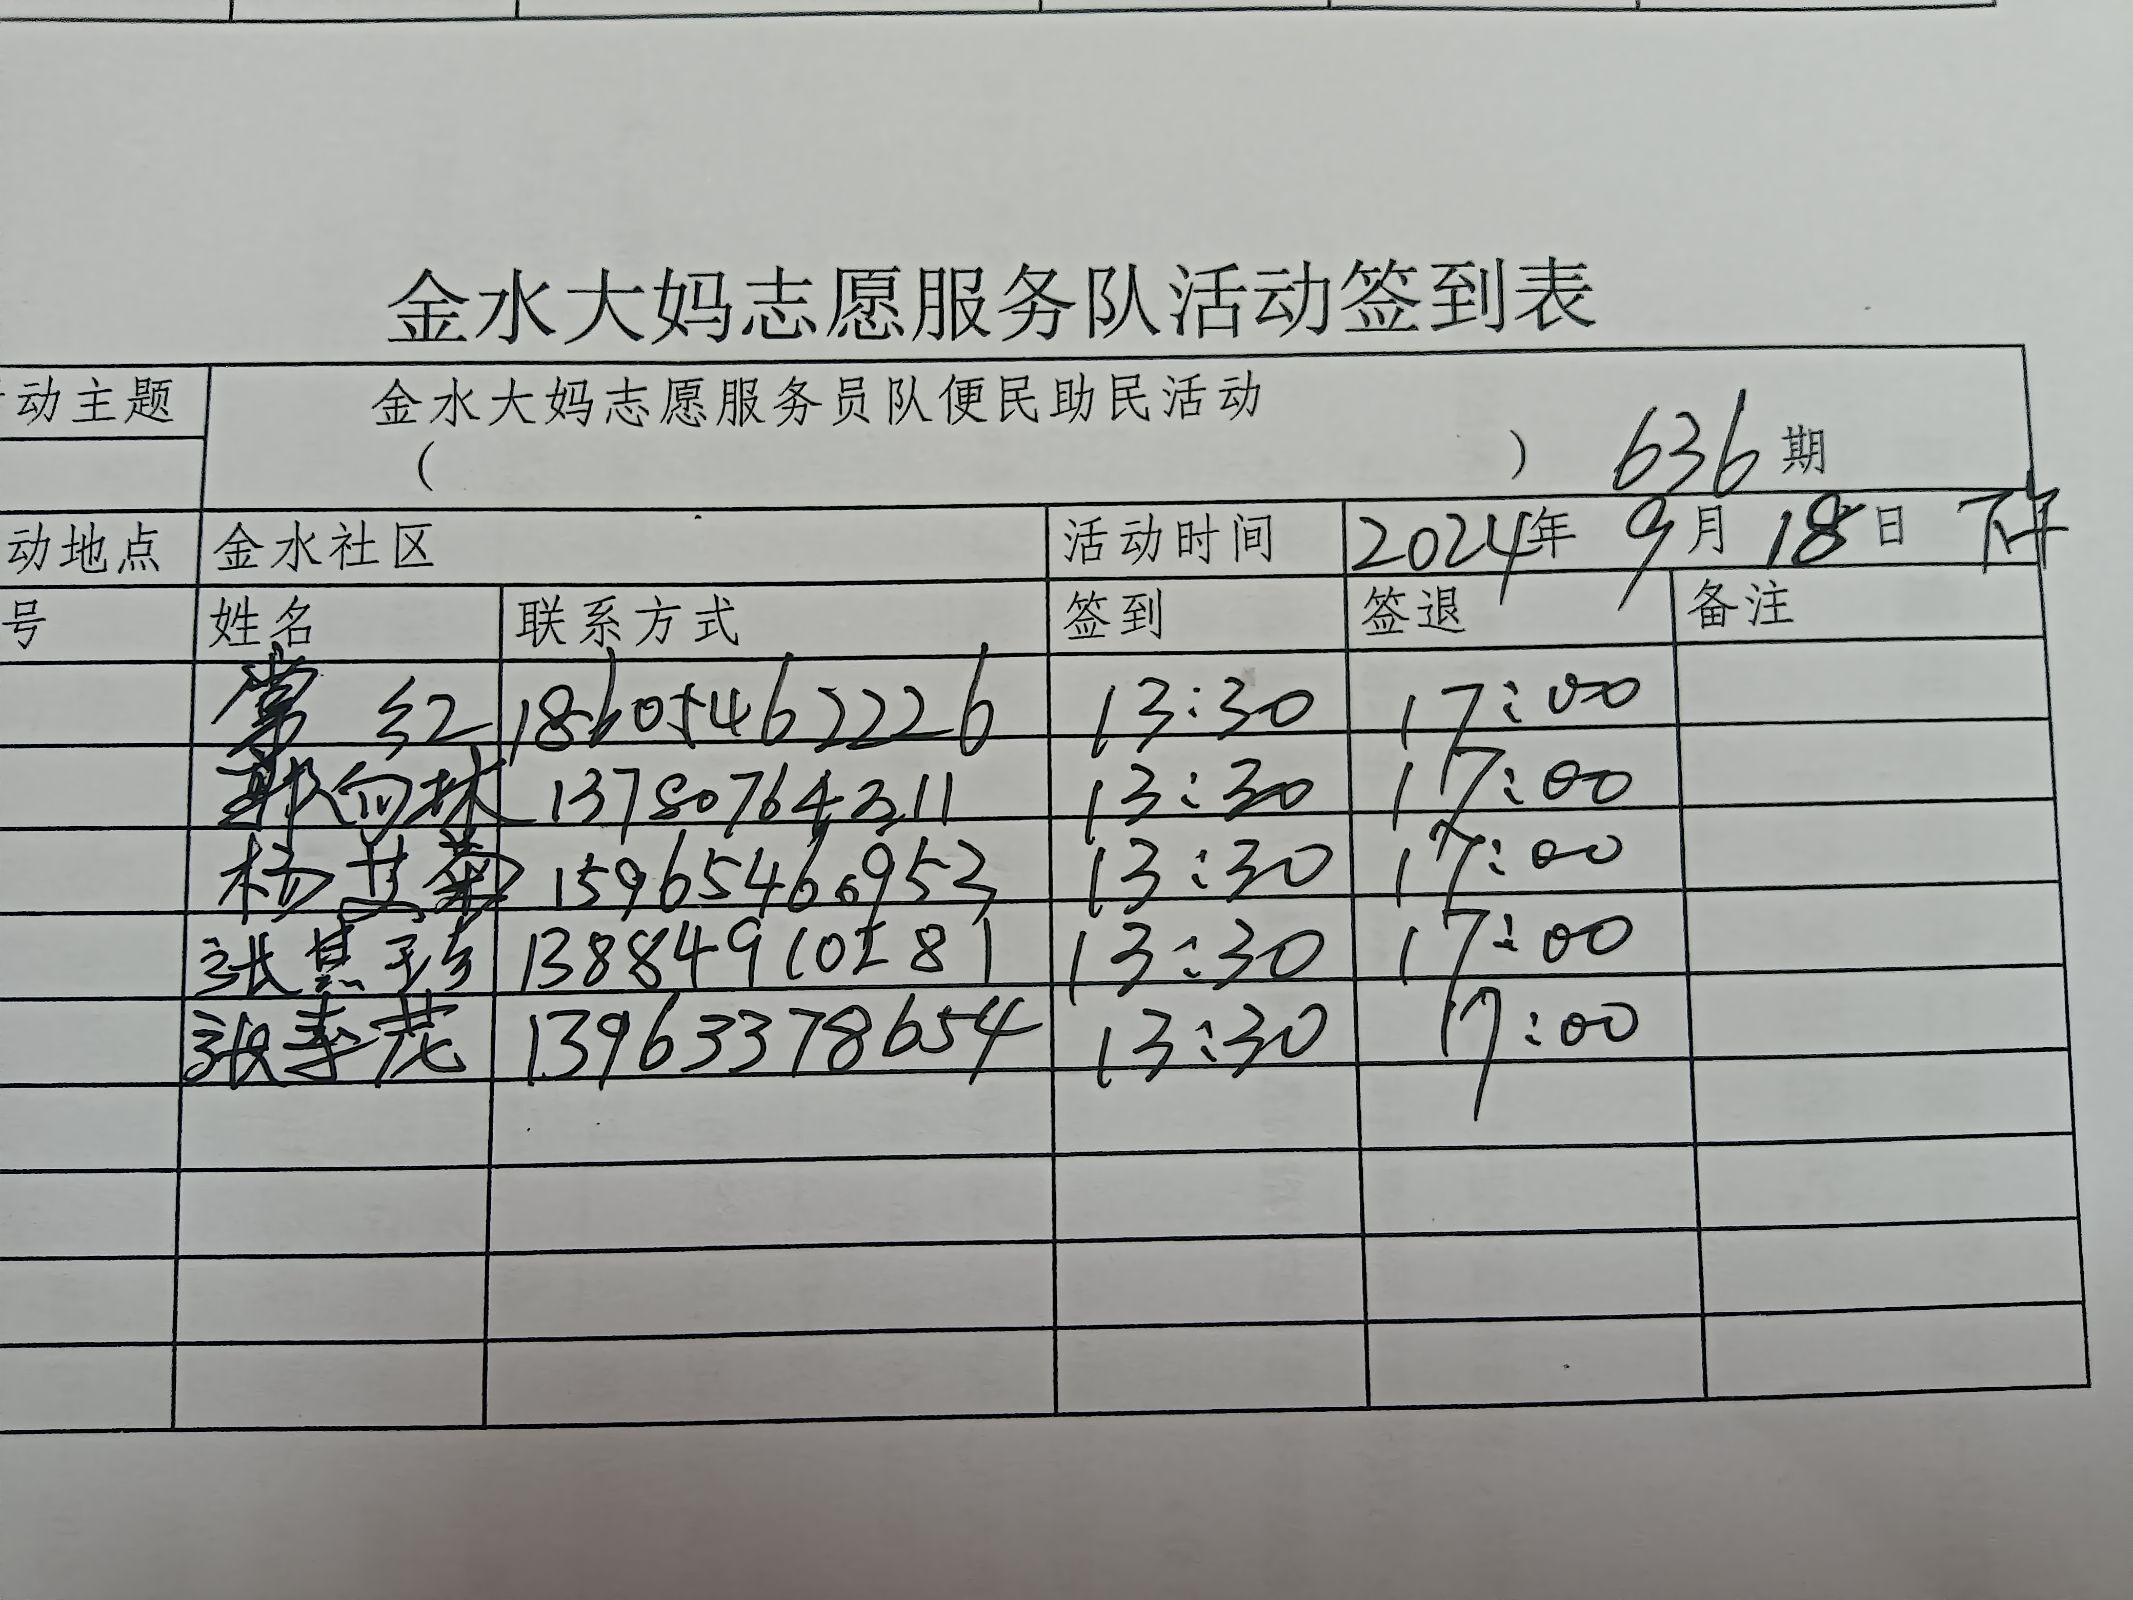 金水大妈志愿服务队活动签到表
动主题 金水大妈志愿服务员队便民助民活动
( ) 636期
动地点 金水社区 活动时间 2024年 9月 18日 下午
号 姓名 联系方式 签到 签退 备注
常 红 18605462226 13:30 17:00
郭向林 13780764211 13:30 17:00
杨兰菊 15965460953 13:30 17:00
张惠珍 13884910581 13:30 17:00
张春花 13963378654 13:30 17:00